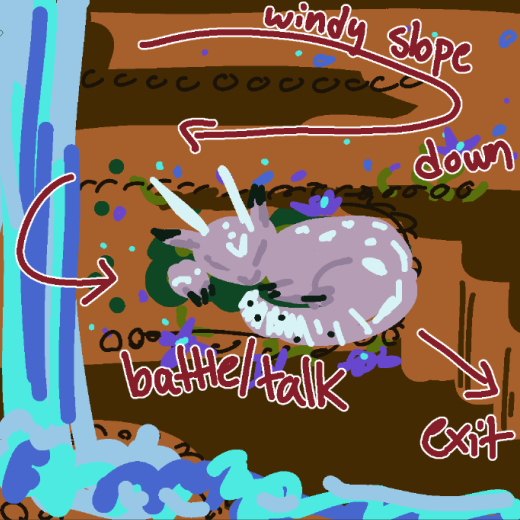 windy slope
down
battle/talk
exit